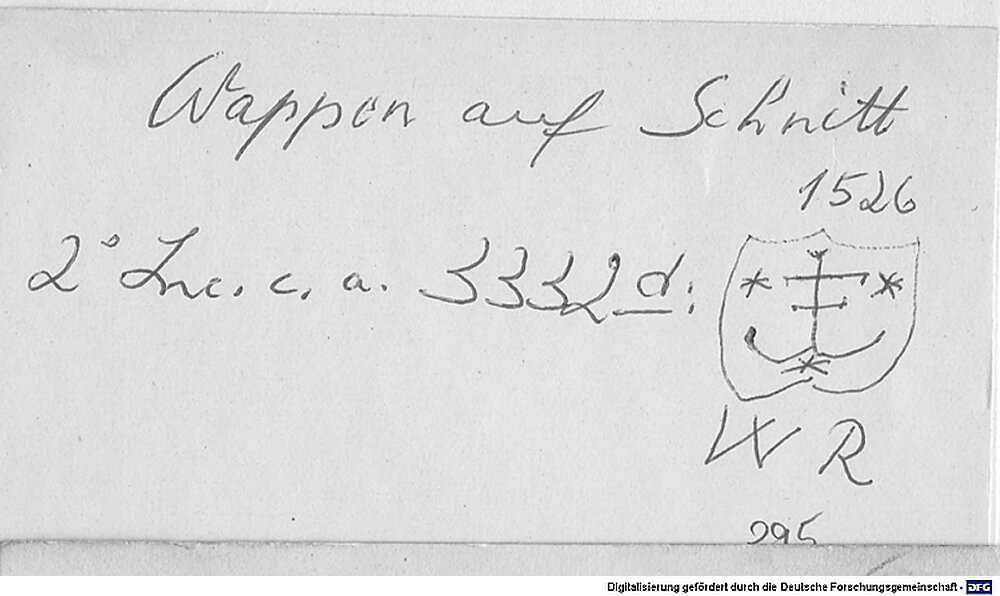 Wappen auf Schnitt
1526
2° Inc. c. a. 3332 d:
W R
Digitalisierung gefördert durch die Deutsche Forschungsgemeinschaft - DFG